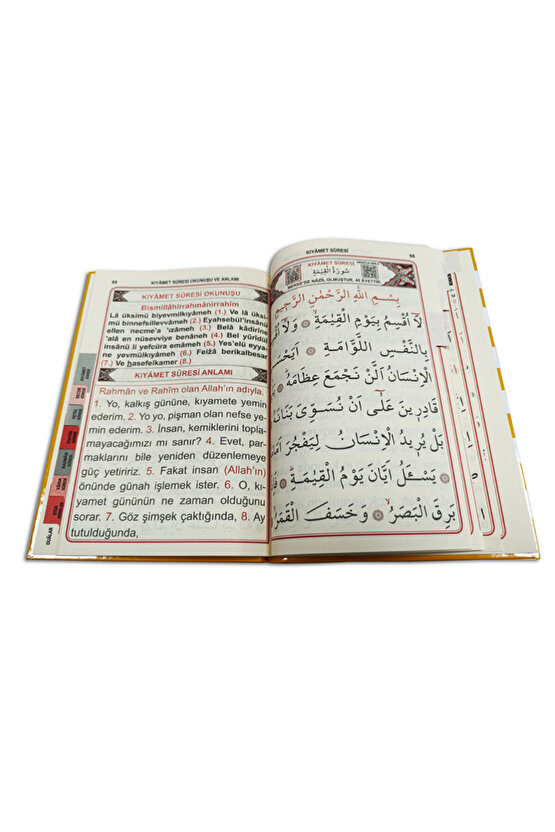 69 KIYÂMET SÛRESİ OKUNUŞU VE ANLAMI
KIYÂMET SÛRESİ OKUNUŞU
Bismillâhirrahmânirrahîm
Lâ üksimü biyevmilkıyâmeh (1.) Ve lâ üksi
mü binnefsillevvâmeh (2.) Eyahsebül'insânü
ellen necme'a 'ızâmeh (3.) Belâ kâdirîne
'alâ en nüsevviye benâneh (4.) Bel yürîdül
insânü li yefcüra emâmeh (5.) Yes'elü eyyâ
ne yevmülkıyâmeh (6.) Feizâ berikalbesar
(7.) Ve hasefelkamer (8.)
KIYÂMET SÛRESİ ANLAMI
Rahmân ve Rahîm olan Allah'ın adıyla.
1. Yo, kalkış gününe, kıyamete yemin
ederim. 2. Yo yo, pişman olan nefse ye-
min ederim. 3. İnsan, kemiklerini topla-
mayacağımızı mı sanır? 4. Evet, par-
maklarını bile yeniden düzenlemeye
güç yetiririz. 5. Fakat insan (Allah'ın)
önünde günah işlemek ister. 6. O, kı-
yamet gününün ne zaman olduğunu
sorar. 7. Göz şimşek çaktığında, 8. Ay
tutulduğunda,
DUÂLAR
KIYÂMET SÛRESİ 68
KIYÂMET SÛRESİ
سُورَةُ الْقِيٰمَةِ
MEKKE'DE NÂZİL OLMUŞTUR. 40 ÂYETTİR
بِسْمِ اللّٰهِ الرَّحْمٰنِ الرَّحِيمِ
لَٓا اُقْسِمُ بِيَوْمِ الْقِيٰمَةِ ۞ وَلَٓا اُقْ
بِالنَّفْسِ اللَّوَّامَةِ ۞ اَيَحْسَ
الْاِنْسَانُ اَلَّنْ نَجْمَعَ عِظَامَهُ ۞
قَادِرِينَ عَلٰٓى اَنْ نُسَوِّىَ بَنَانَهُ
بَلْ يُرِيدُ الْاِنْسَانُ لِيَفْجُرَ اَمَا
۞ يَسْـَٔلُ اَيَّانَ يَوْمُ الْقِيٰمَةِ ۞ فَاِ
بَرِقَ الْبَصَرُ ۞ وَخَسَفَ الْقَمَرُ